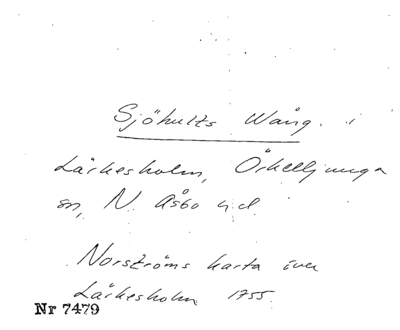 Sjöhults Wång. i
Lärkesholm, Örkelljunga
sn, N. Åsbo hd.
Norströms karta över
Lärkesholm 1755.
Nr 7479